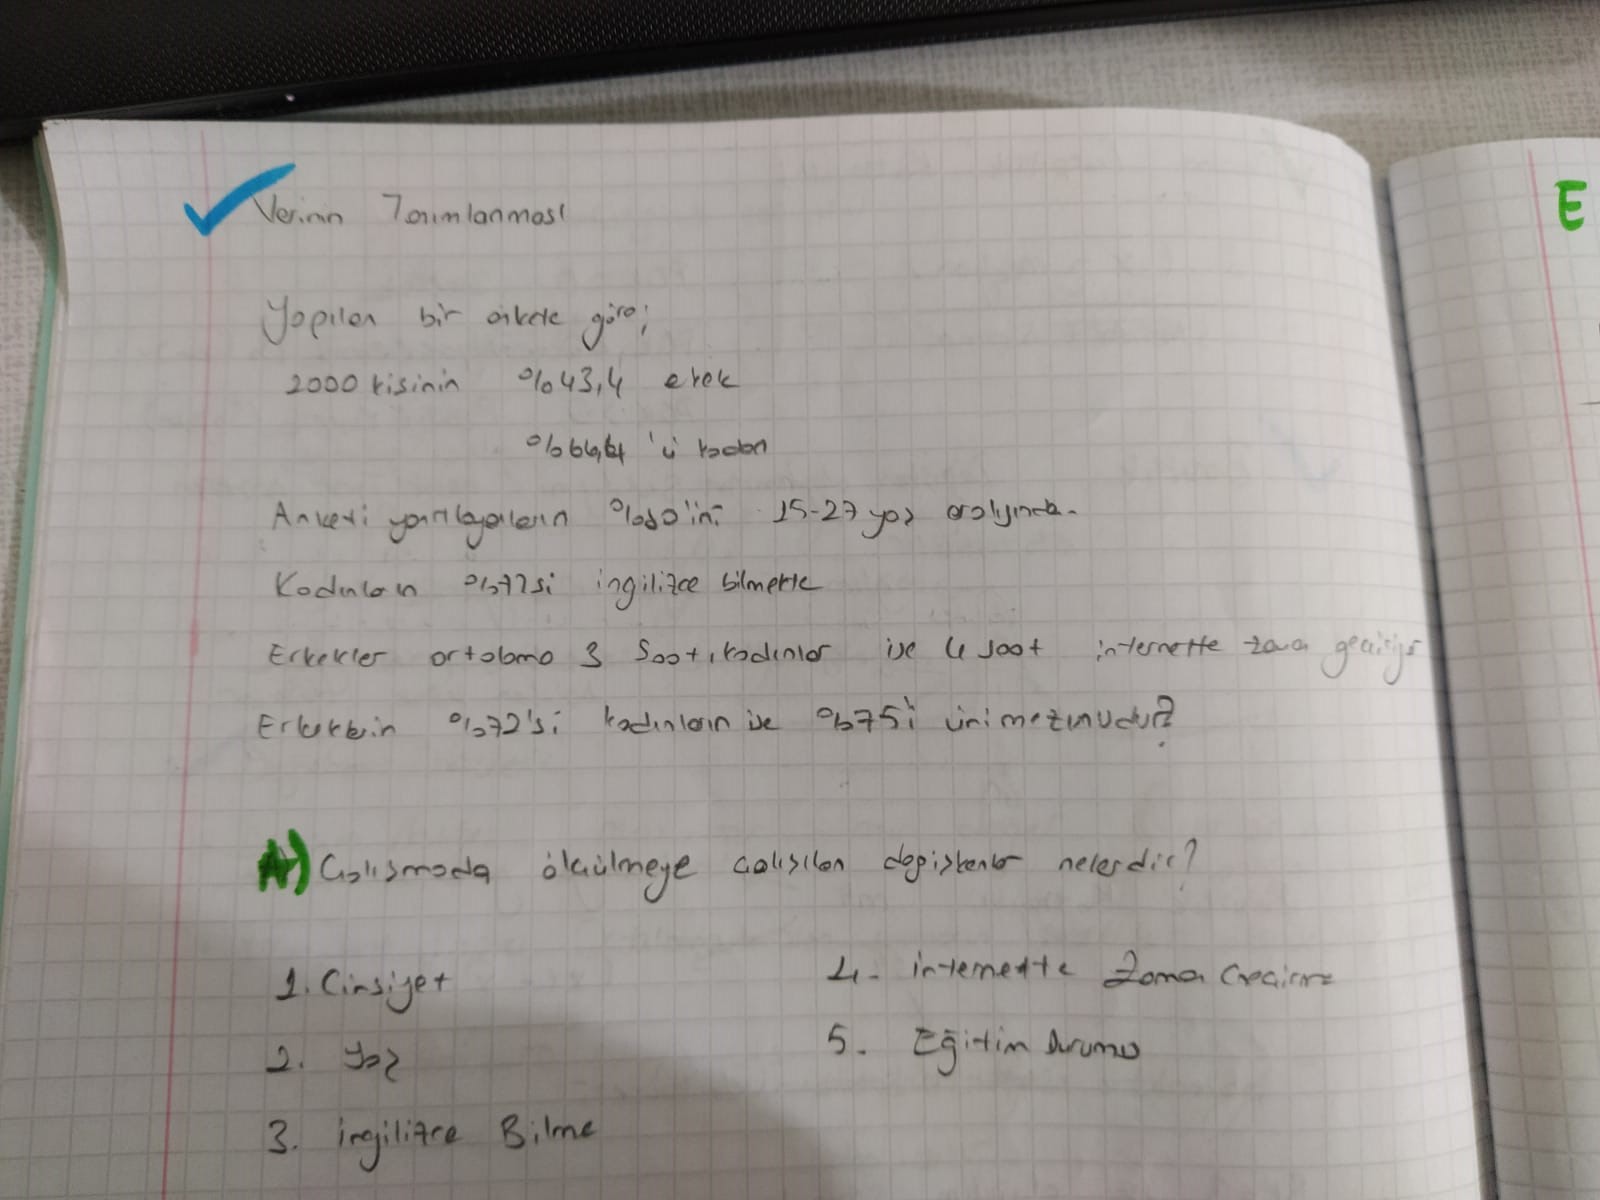 Verinin Tanımlanması
Yapılan bir ankete göre;
2000 kisinin %43,4 erek
%66,4 'ü kadın
Anketi yanıtlayanların %80'ini 15-27 yaş aralığında.
Kadınların %72si ingilizce bilmekte
Erkekler ortalama 3 Saat, kadınlar ise 4 saat internette zaman geçiriyor
Erkeklerin %72'si kadınların ise %75i üni mezunudur?
A) Çalışmada ölçülmeye çalışılan değişkenler nelerdir?
1. Cinsiyet
2. Yaş
3. ingilizce Bilme
4. internette Zaman Geçirme
5. Eğitim Durumu
E